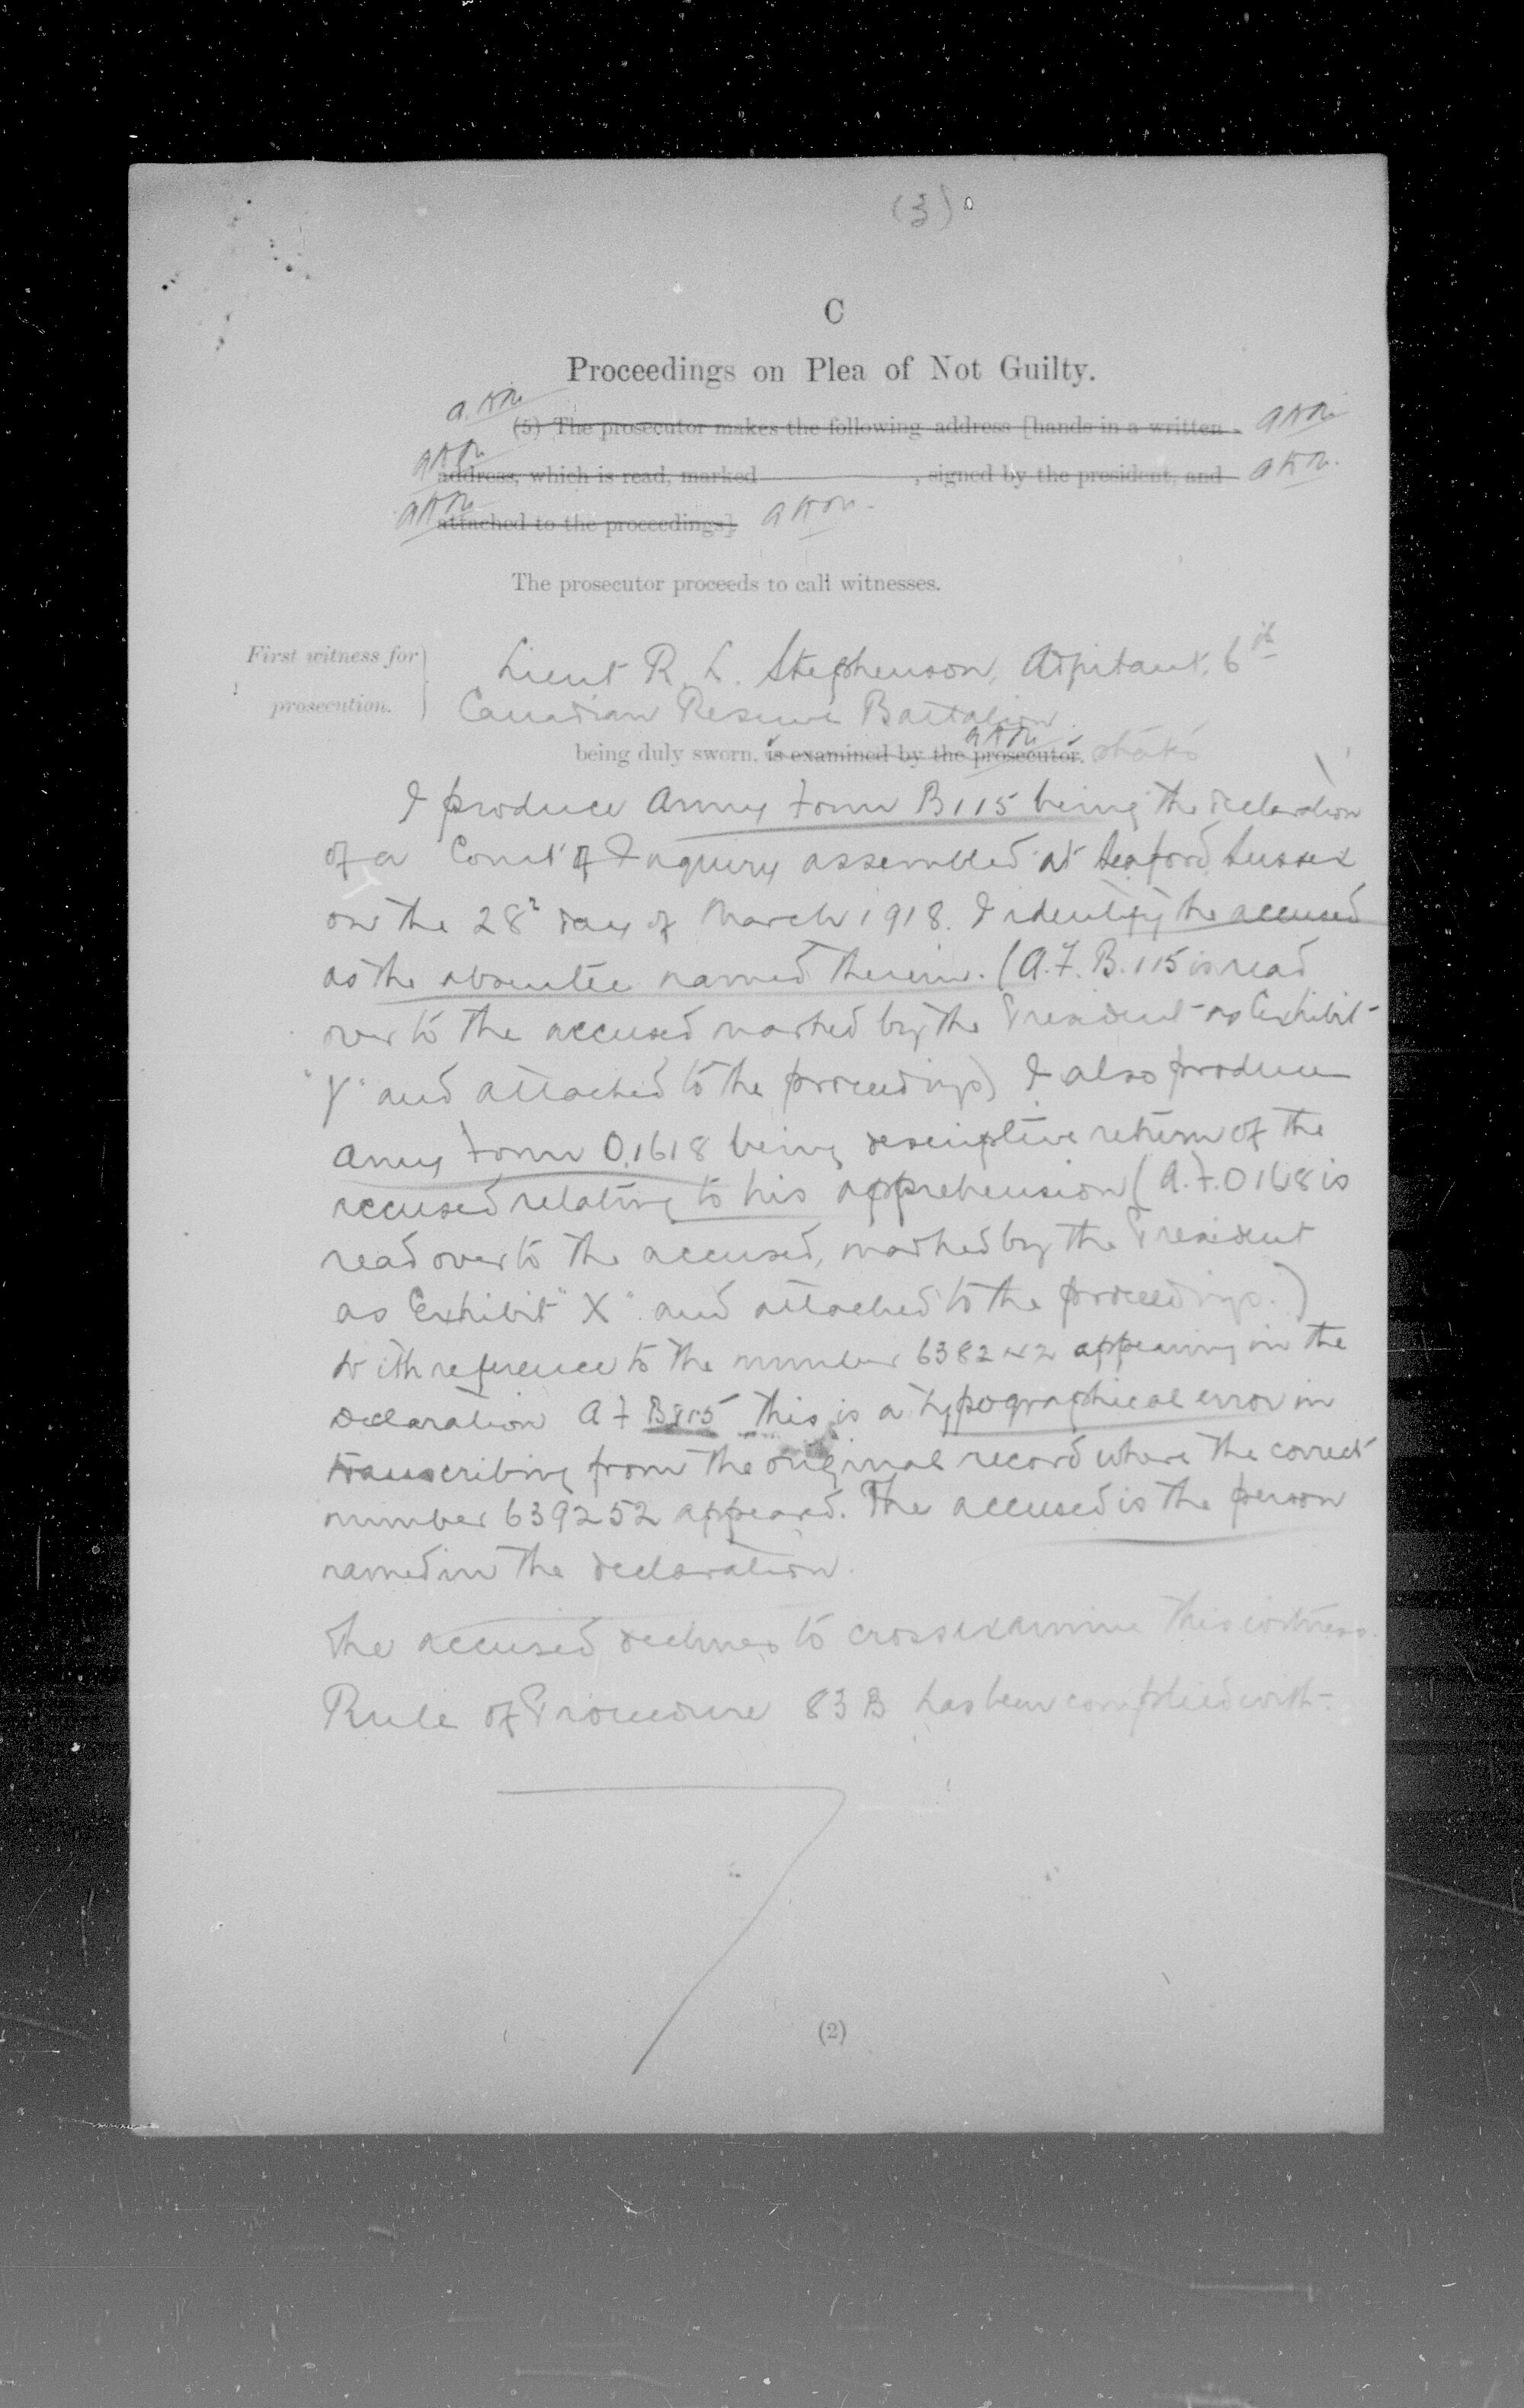 (3)
C
Proceedings on Plea of Not Guilty.
(5) The prosecutor makes the following address [hands in a written
address, which is read, marked , signed by the president, and
attached to the proceedings].
The prosecutor proceeds to call witnesses.
First witness for prosecution.
Lieut R. L. Stephenson, Adjutant, 6th
Canadian Reserve Battalion.
being duly sworn, is examined by the prosecutor. states
I produce Army Form B115 being the declaration
of a Court of Inquiry assembled at Seaford Sussex
on the 28 day of March 1918. I identify the accused
as the absentee named therein. (A.F. B.115 is read
over to the accused marked by the President as Exhibit
"Y" and attached to the proceedings) I also produce
Army Form O.1618 being descriptive return of the
accused relating to his apprehension (A.F. O 1618 is
read over to the accused, marked by the President
as Exhibit "X" and attached to the proceedings.)
With reference to the number 638242 appearing in the
declaration A F B115 this is a typographical error in
transcribing from the original record where the correct
number 639252 appeared. The accused is the person
named in the declaration.
The accused declines to cross examine this witness.
Rule of Procedure 83 B has been complied with.
(2)